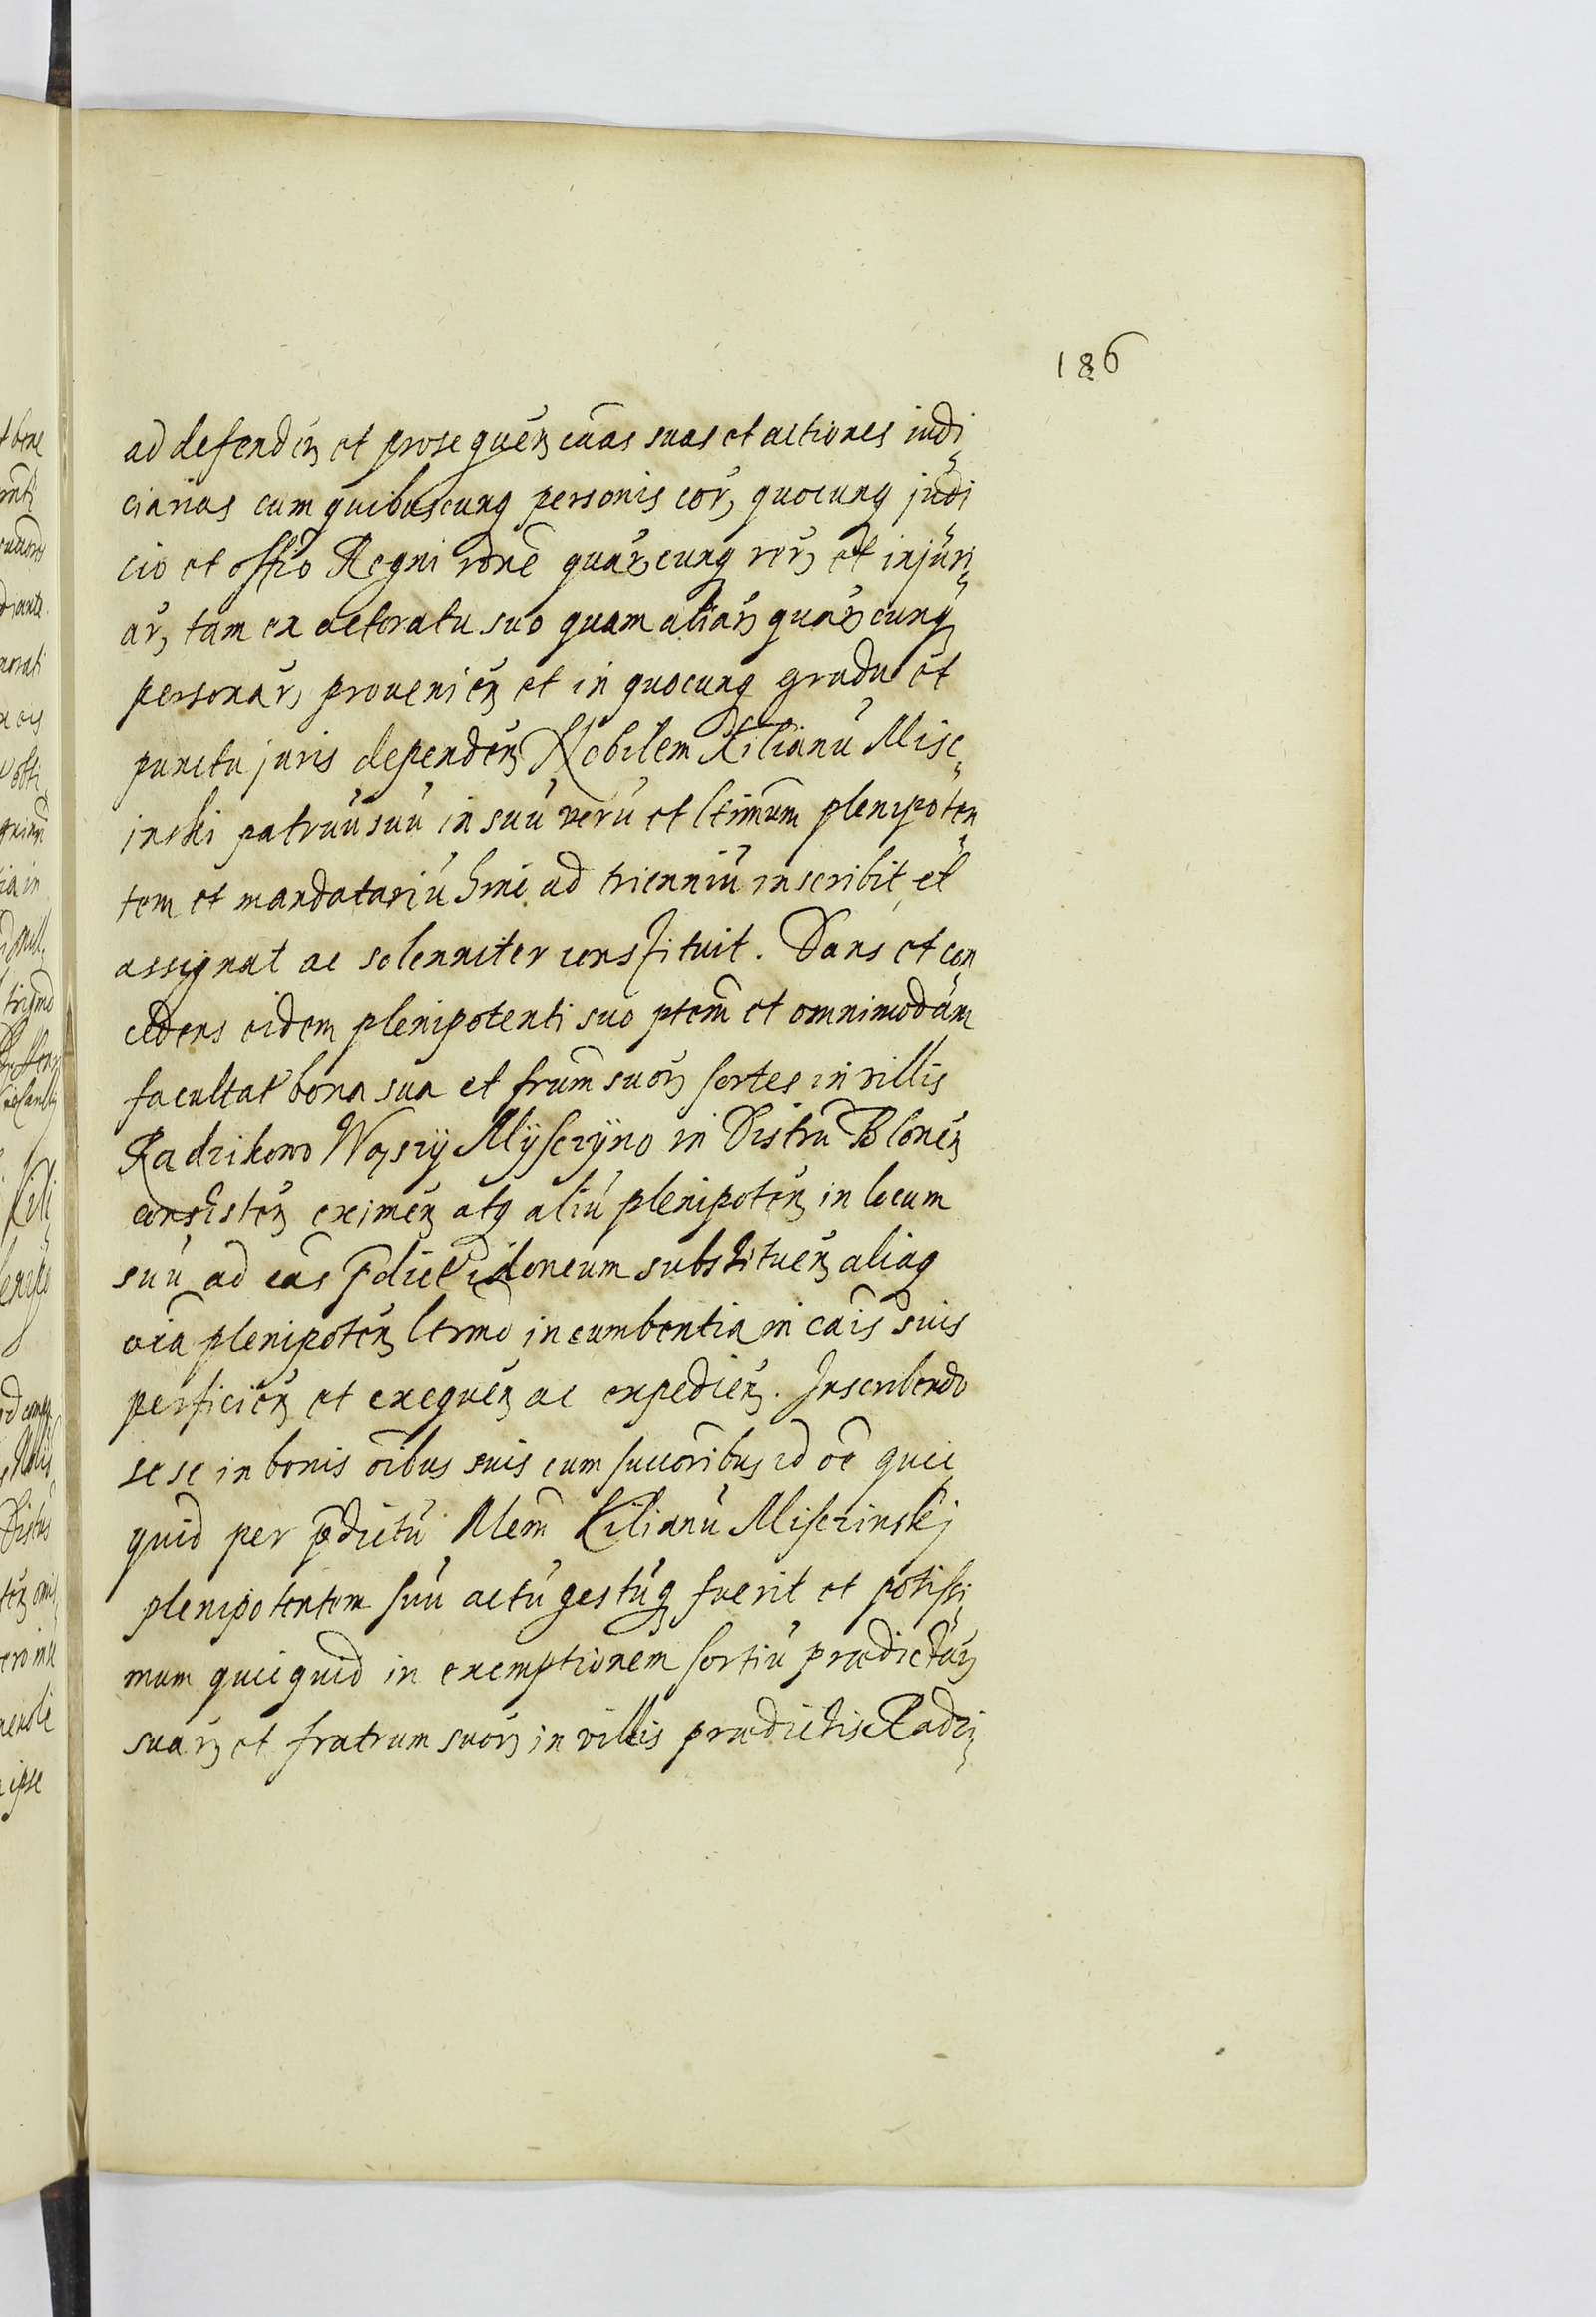 186
ad defendeñ et prosequeñ cãas suas et actiones iudi„
ciarias cum quibuscunq personis cor, quocunq judi„
cio et offio Regni rõne quarcunq rer, et injuri„
ar, tam ex actoratu suo quam aliar, quarcunq
personar, provenieñ et in quocunq gradu et
puncto juris dependeñ Nobilem Kilianũ Misc„
inski patruũ suũ in suũ verũ et ltimum plenipoten„
tem et mandatariũ hinc ad trienniũ inscribit, et
assignat ac solenniter constituit. Dans et con„
cedens eidem plenipotenti suo ptem et omnimodam
facultat bona sua et frum suor, sortes in villis
Radzikowo Wąszÿ Mÿsczÿno in Distru Bloneñ
consisteñ eximeñ atq aliũ plenipoteñ in locum
suũ ad cãs pdict idoneum substitueñ aliaq
oia plenipoteñ ltimo incumbentia in cais suis
perficieñ et exequeñ ac expedieñ. Inscribendo
sese in bonis oibus suis cum succoribus id oe quic„
quid per pdictũ Nlem Kilianũ Misczinskj
plenipotentem suũ actũ gestũq fuerit et potissi„
mum quicquid in exemptionem sortiũ prædictar,
suar, et fratrum suor, in villis prædictis Radzi„